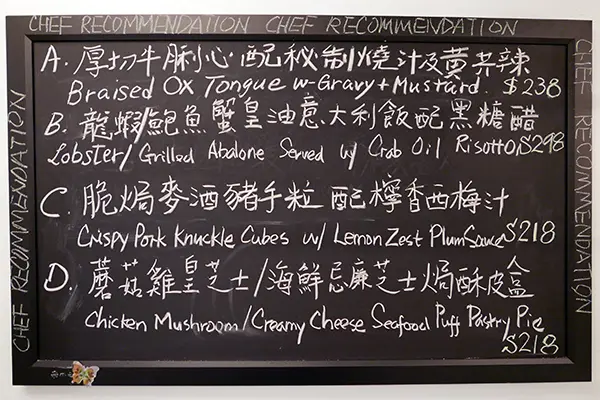 CHEF RECOMMENDATION CHEF RECOMMENDATION
A. 厚切牛脷心 配秘制燒汁及黃芥辣
Braised Ox Tongue w-Gravy+Mustard. $238
B. 龍蝦/鮑魚蟹皇油意大利飯配黑糖醋
Lobster/Grilled Abalone Served w/ Crab Oil Risotto, $298
C. 脆焗麥酒豬手粒 配檸香西梅汁
Crispy Pork Knuckle Cubes w/ Lemon Zest Plum Sauce $218
D. 蘑菇雞皇芝士/海鮮忌廉芝士焗酥皮盒
Chicken Mushroom/Creamy Cheese Seafood Puff Pastry Pie
$218
CHEF RECOMMENDATION
CHEF RECOMMENDATION